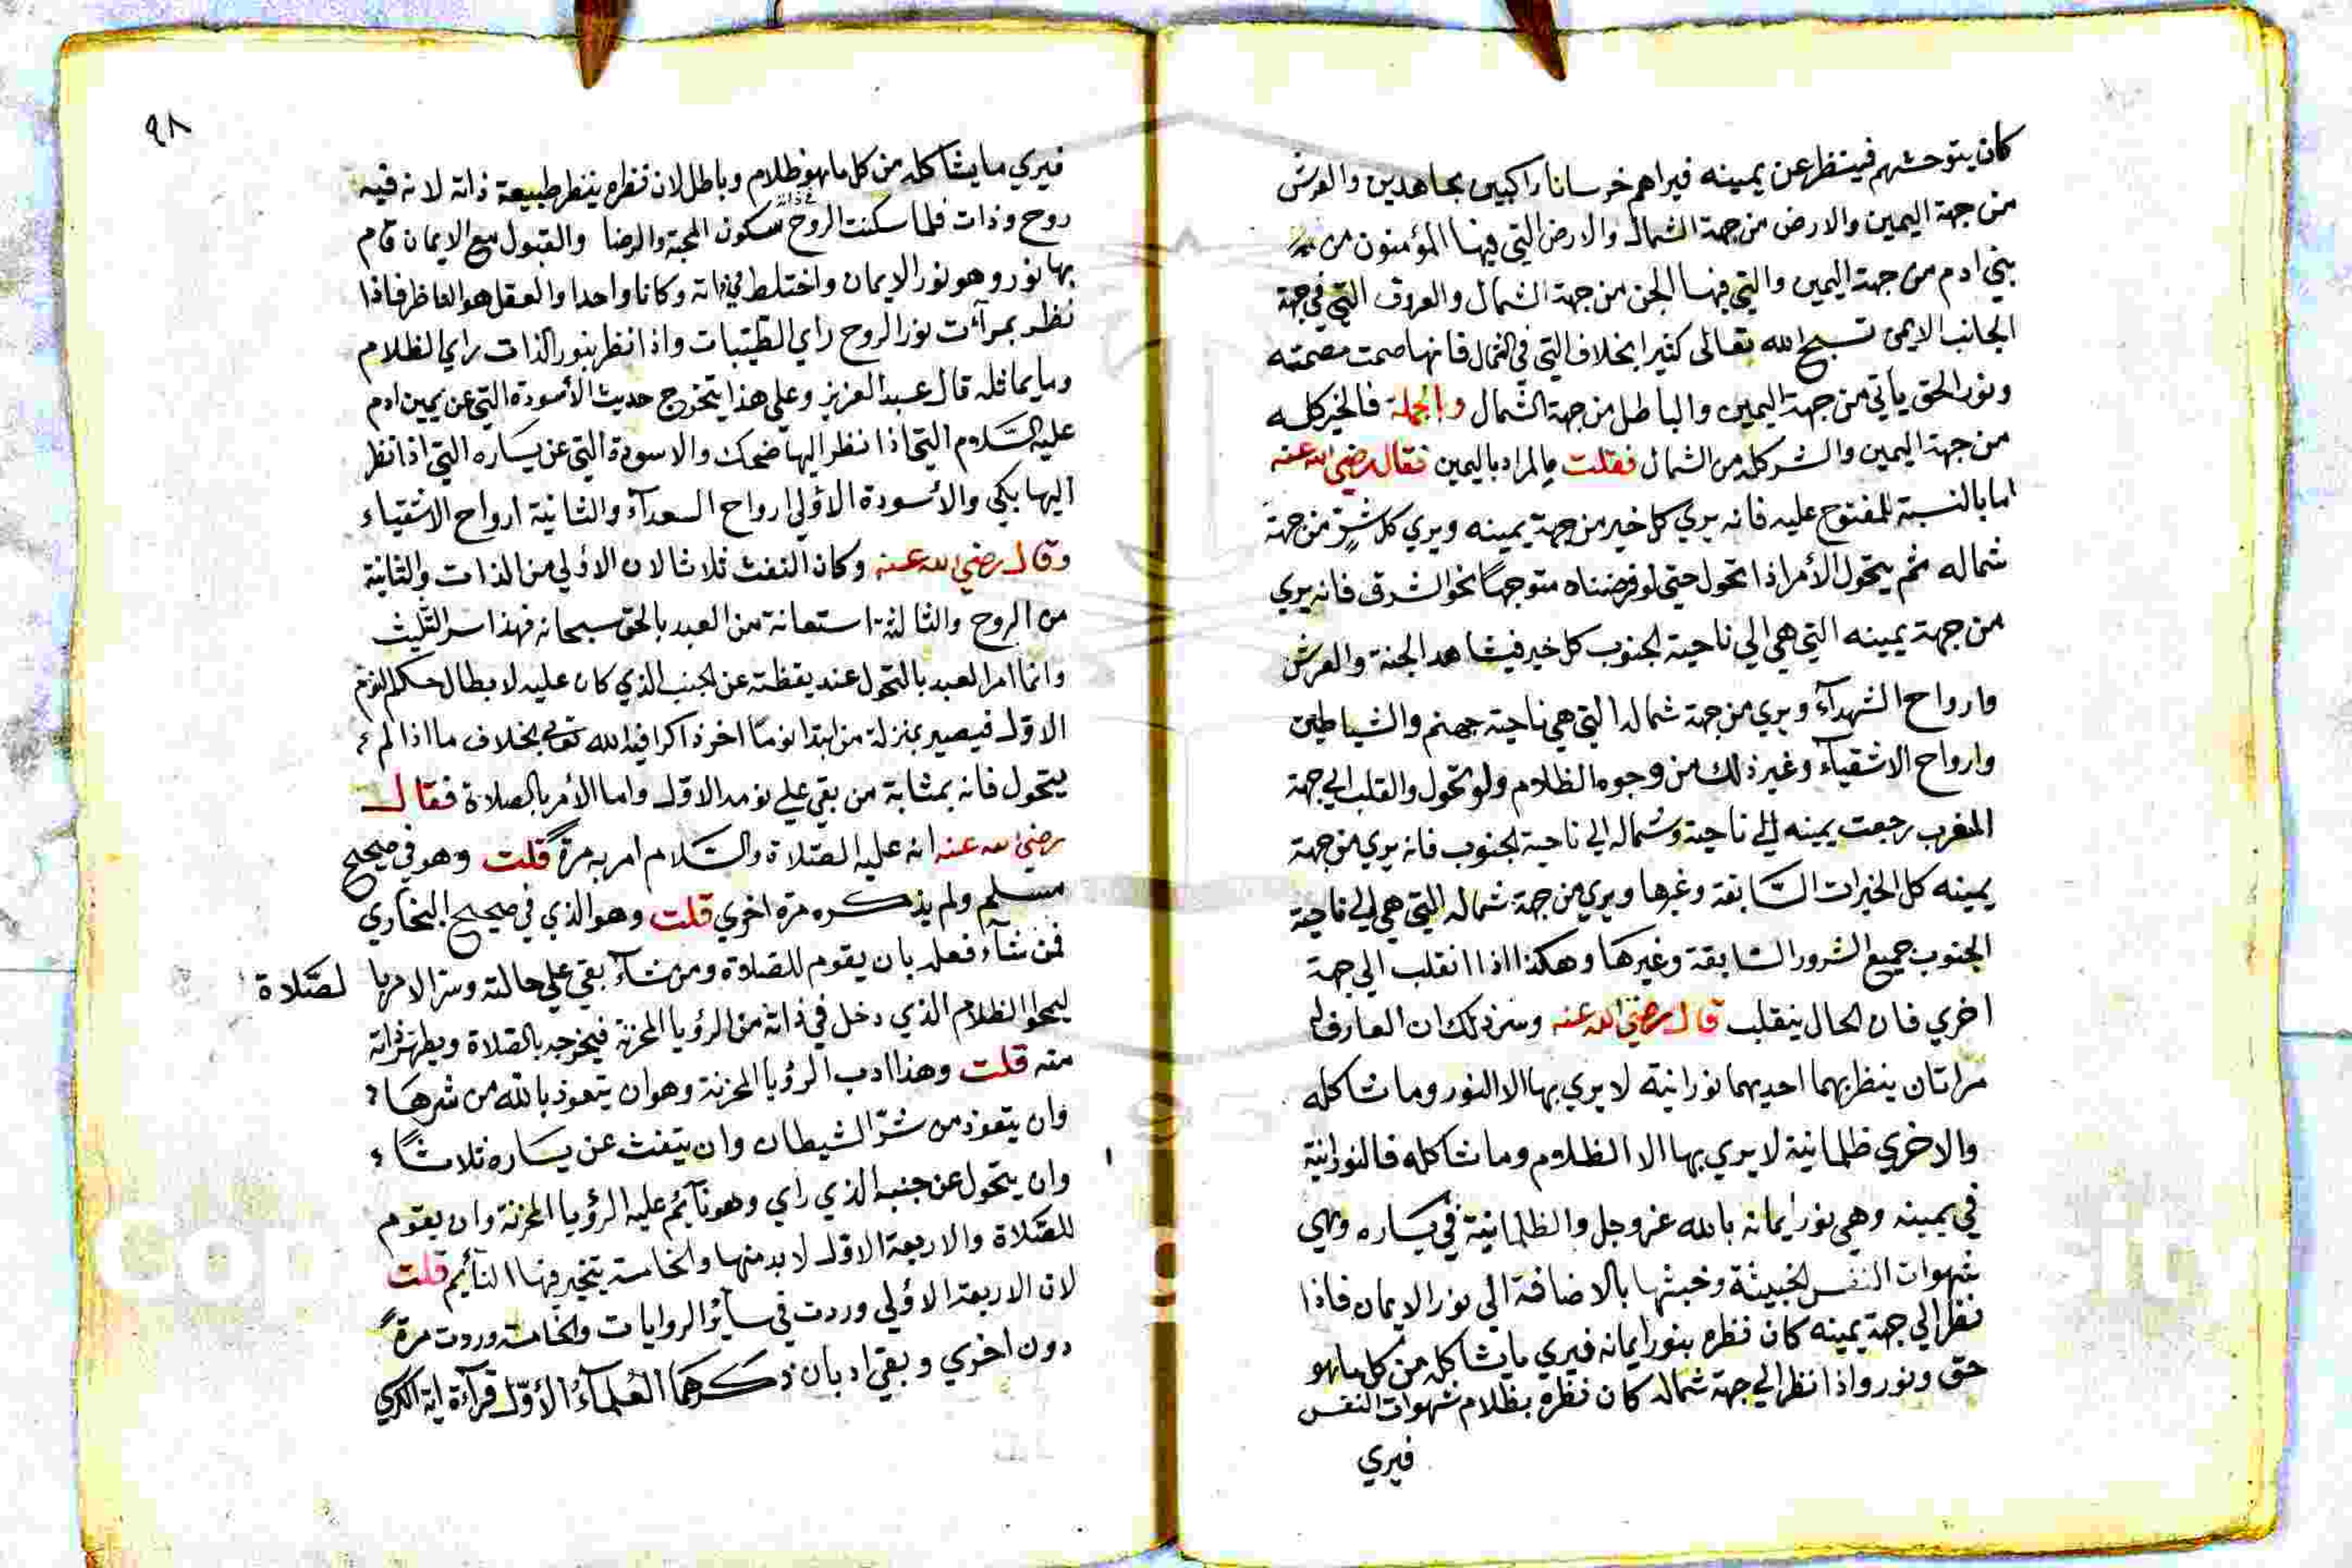 كان يتوحشهم فينظر عن يمينه فيراهم خرسانا راكبين مجاهدين والعرش
من جهة اليمين والارض من جهة الشمال والارض التي فيها المؤمنون من
بني ادم من جهة اليمين والتي فيها الجن من جهة الشمال والعروق التي في جهة
الجانب الايمن تسبح الله تعالى كثيرا بخلاف التي في الشمال فانها صمت مصمتة
ونور الحق ياتي من جهة اليمين والباطل من جهة الشمال وبالجملة فالخير كله
من جهة اليمين والشر كله من الشمال فقلت ما المراد باليمين فقال رضي الله عنه
اما بالنسبة للمفتوح عليه فانه يري كل خير من جهة يمينه ويري كل شر من جهة
شماله ثم يتحول الأمر اذا تحول حتى لو فرضناه متوجها نحو الشرق فانه يري
من جهة يمينه التي هي الي ناحية الجنوب كل خير فيشاهد الجنة والعرش
وارواح الشهدآء ويري من جهة شماله التي هي ناحية جهنم والشياطين
وارواح الاشقيآء وغير ذلك من وجوه الظلام ولو تحول وانقلب الي جهة
المغرب رجعت يمينه الي ناحية وشماله الي ناحية الجنوب فانه يري من جهة
يمينه كل الخيرات السابقة وغيرها ويري من جهة شماله التي هي الي ناحية
الجنوب جميع الشرور السابقة وغيرها وهكذا اذا انقلب الي جهة
اخري فان الحال ينقلب قال رضي الله عنه وسر ذلك ان العارف له
مراتان ينظر بهما احديهما نورانية لا يري بها الا النور وما شاكله
والاخري ظلمانية لا يري بها الا الظلام وما شاكله فالنورانية
في يمينه وهي نور ايمانه بالله عز وجل والظلمانية في يساره وهي
شهوات النفس الخبيثة وخبثها بالاضافة الي نور الايمان فاذا
نظر الي جهة يمينه كان نظره بنور ايمانه فيري ما يشاكله من كل ما هو
حق ونور واذا نظر الي جهة شماله كان نظره بظلام شهوات النفس
فيري
٩٨
فيري ما يشاكله من كل ما هو ظلام وباطل لان نظره ينظر طبيعة ذاته لانه فيه
روح وذات فلما سكنت الروح سكون المحبة والرضا والقبول مع الايمان قام
بها نور وهو نور الايمان واختلط في ذاته وكانا واحدا والعقل هو الناظر فاذا
نظر بمرآت نور الروح راي الطيبات واذا نظر بنور الذات راي الظلام
وما يماثله قال عبد العزيز وعلي هذا يتخرج حديث الأسودة التي عن يمين ادم
عليه السلام التي اذا نظر اليها ضحك والاسودة التي عن يساره التي اذا نظر
اليها بكي والأسودة الاولي ارواح السعدآء والثانية ارواح الاشقياء
وقال رضي الله عنه وكان النفث ثلاثا لان الاولي من الذات والثانية
من الروح والثالثة استعانة من العبد بالحق سبحانه فهذا سر التثليث
وانما امر العبد بالتحول عند يقظته عن الجنب الذي كان عليه لابطال حكم النوم
الاول فيصير بمنزلة من ابتدا نوما اخر ذاكرا فيه الله تعالى بخلاف ما اذا لم
يتحول فانه بمثابة من بقي علي نومه الاول واما الأمر بالصلاة فقال
رضي الله عنه انه عليه الصلاة والسلام امر به مرة قلت وهو في صحيح
مسلم ولم يذكره مرة اخري قلت وهو الذي في صحيح البخاري
فمن شآء فعله بان يقوم للصلاة ومن شآء بقي علي حالته وسر الامر بالصلاة
ليمحوا الظلام الذي دخل في ذاته من الرؤيا المحزنة فيخرجه بالصلاة ويطهر ذاته
منه قلت وهذا ادب الرؤيا المحزنة وهو ان يتعوذ بالله من شرها
وان يتعوذ من شر الشيطان وان يتفث عن يساره ثلاثا
وان يتحول عن جنبه الذي راي وهو نآئم عليه الرؤيا المحزنة وان يقوم
للصلاة والاربعة الاول لا بد منها والخامسة يتخير فيها النآئم قلت
لان الاربعة الاولي وردت في سآئر الروايات والخامسة وردت مرة
دون اخري وبقي ادبان ذكرهما العلمآء الأول قرآءة اية الكرسي